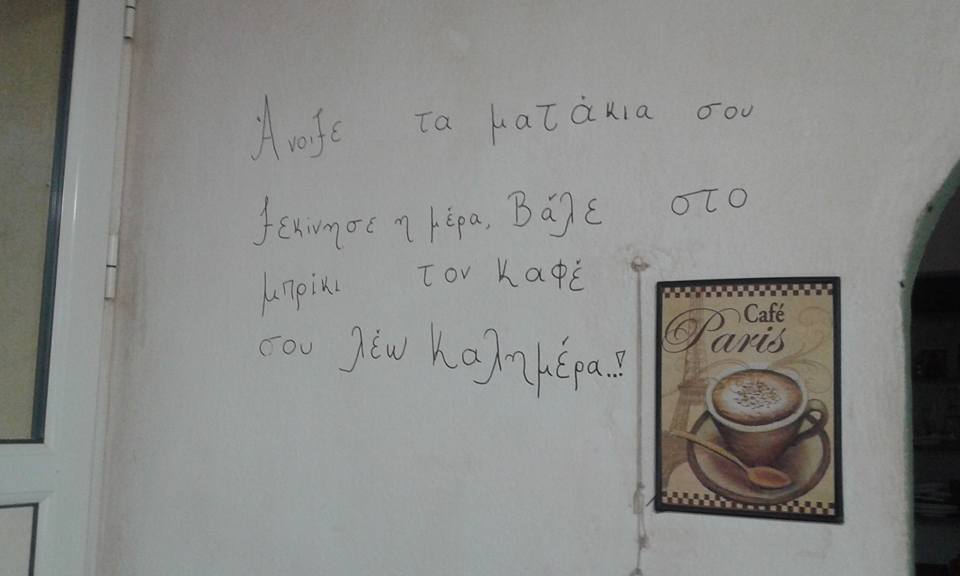 Άνοιξε τα ματάκια σου
ξεκίνησε η μέρα, Βάλε στο
μπρίκι τον καφέ
σου λέω Καλημέρα...!
Café
Paris